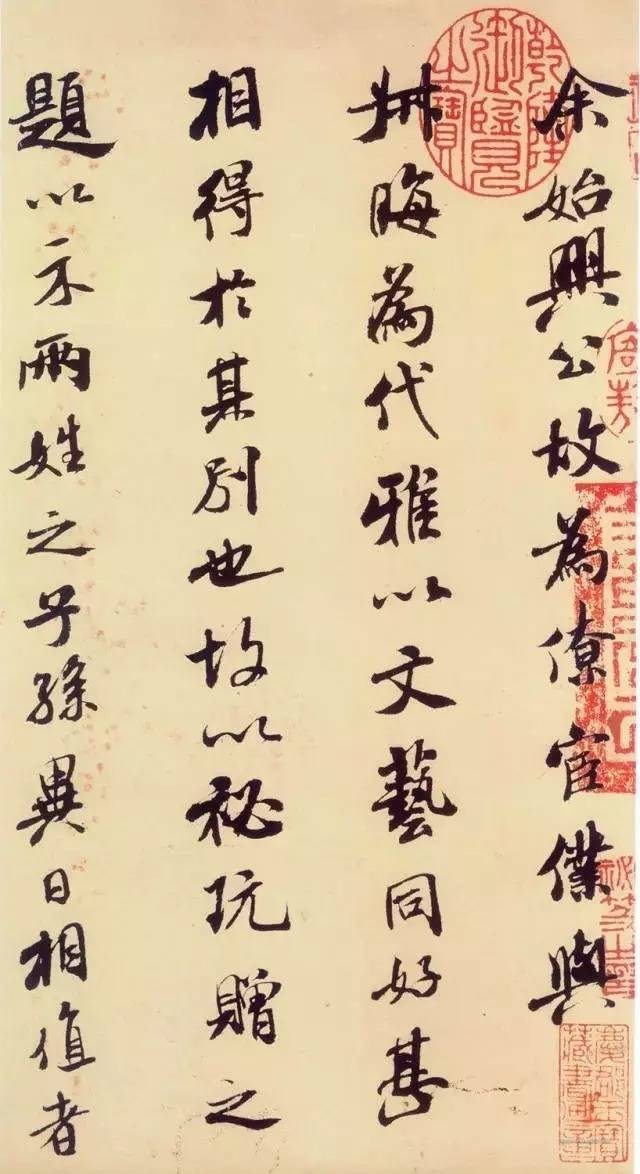 余始興公故為僚宦僕與
叔晦為代雅以文藝同好甚
相得於其別也故以祕玩贈之
題以示兩姓之子孫異日相值者
乾隆御覽之寶